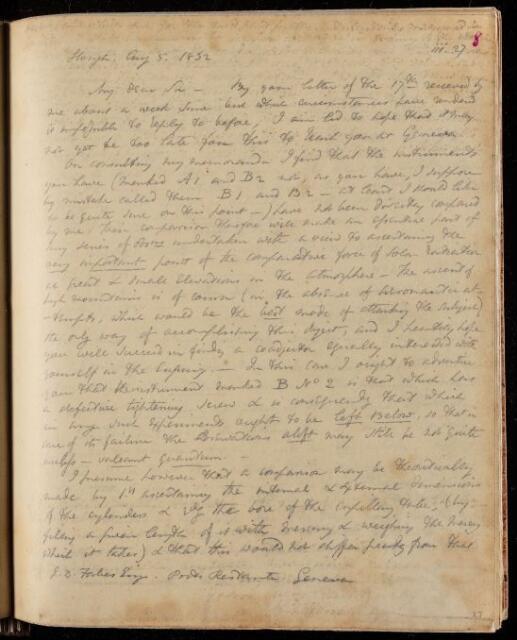 8
Slough. Aug 5. 1832
iii. 27
My dear Sir — By your letter of the 17th received by
me about a week since but which circumstances have rendered
it impossible to reply to before, I am led to hope that it may
not yet be too late for this to reach you at Geneva.
On consulting my memoranda I find that the instruments
you have (marked A1 and B2 not, as you have, I suppose
by mistake called them B1 and B2 — at least I should like
to be quite sure on this point —) have not been directly compared
by me. Their comparison therefore will make an essential part of
any series of Obsns undertaken with a view to ascertaining the
very important point of the comparative force of Solar radiation
at great & small elevations in the atmosphere — The ascent of
high mountains is of course (in the absence of aeronautic at
-tempts, which would be the best mode of attacking the subject)
the only way of accomplishing this object, and I heartily hope
you will succeed in finding a coadjutor equally interested with
yourself in the enquiry. — In this case I ought to advertise
you that the instrument marked B No 2 is that which has
a defective tightening screw & is consequently that which
in any such experiments ought to be left below, so that in
case of its failure the Observations aloft may still be not quite
useless — valeant quantum —
I presume however that a comparison may be theoretically
made by 1st ascertaining the internal & external dimensions
of the cylinders & 2dly the bore of the capillary tube (by
filling a given length of it with mercury & weighing the mercury
which it takes) & that this would not differ greatly from that
J. D. Forbes Esqr. Poste Restante Geneva